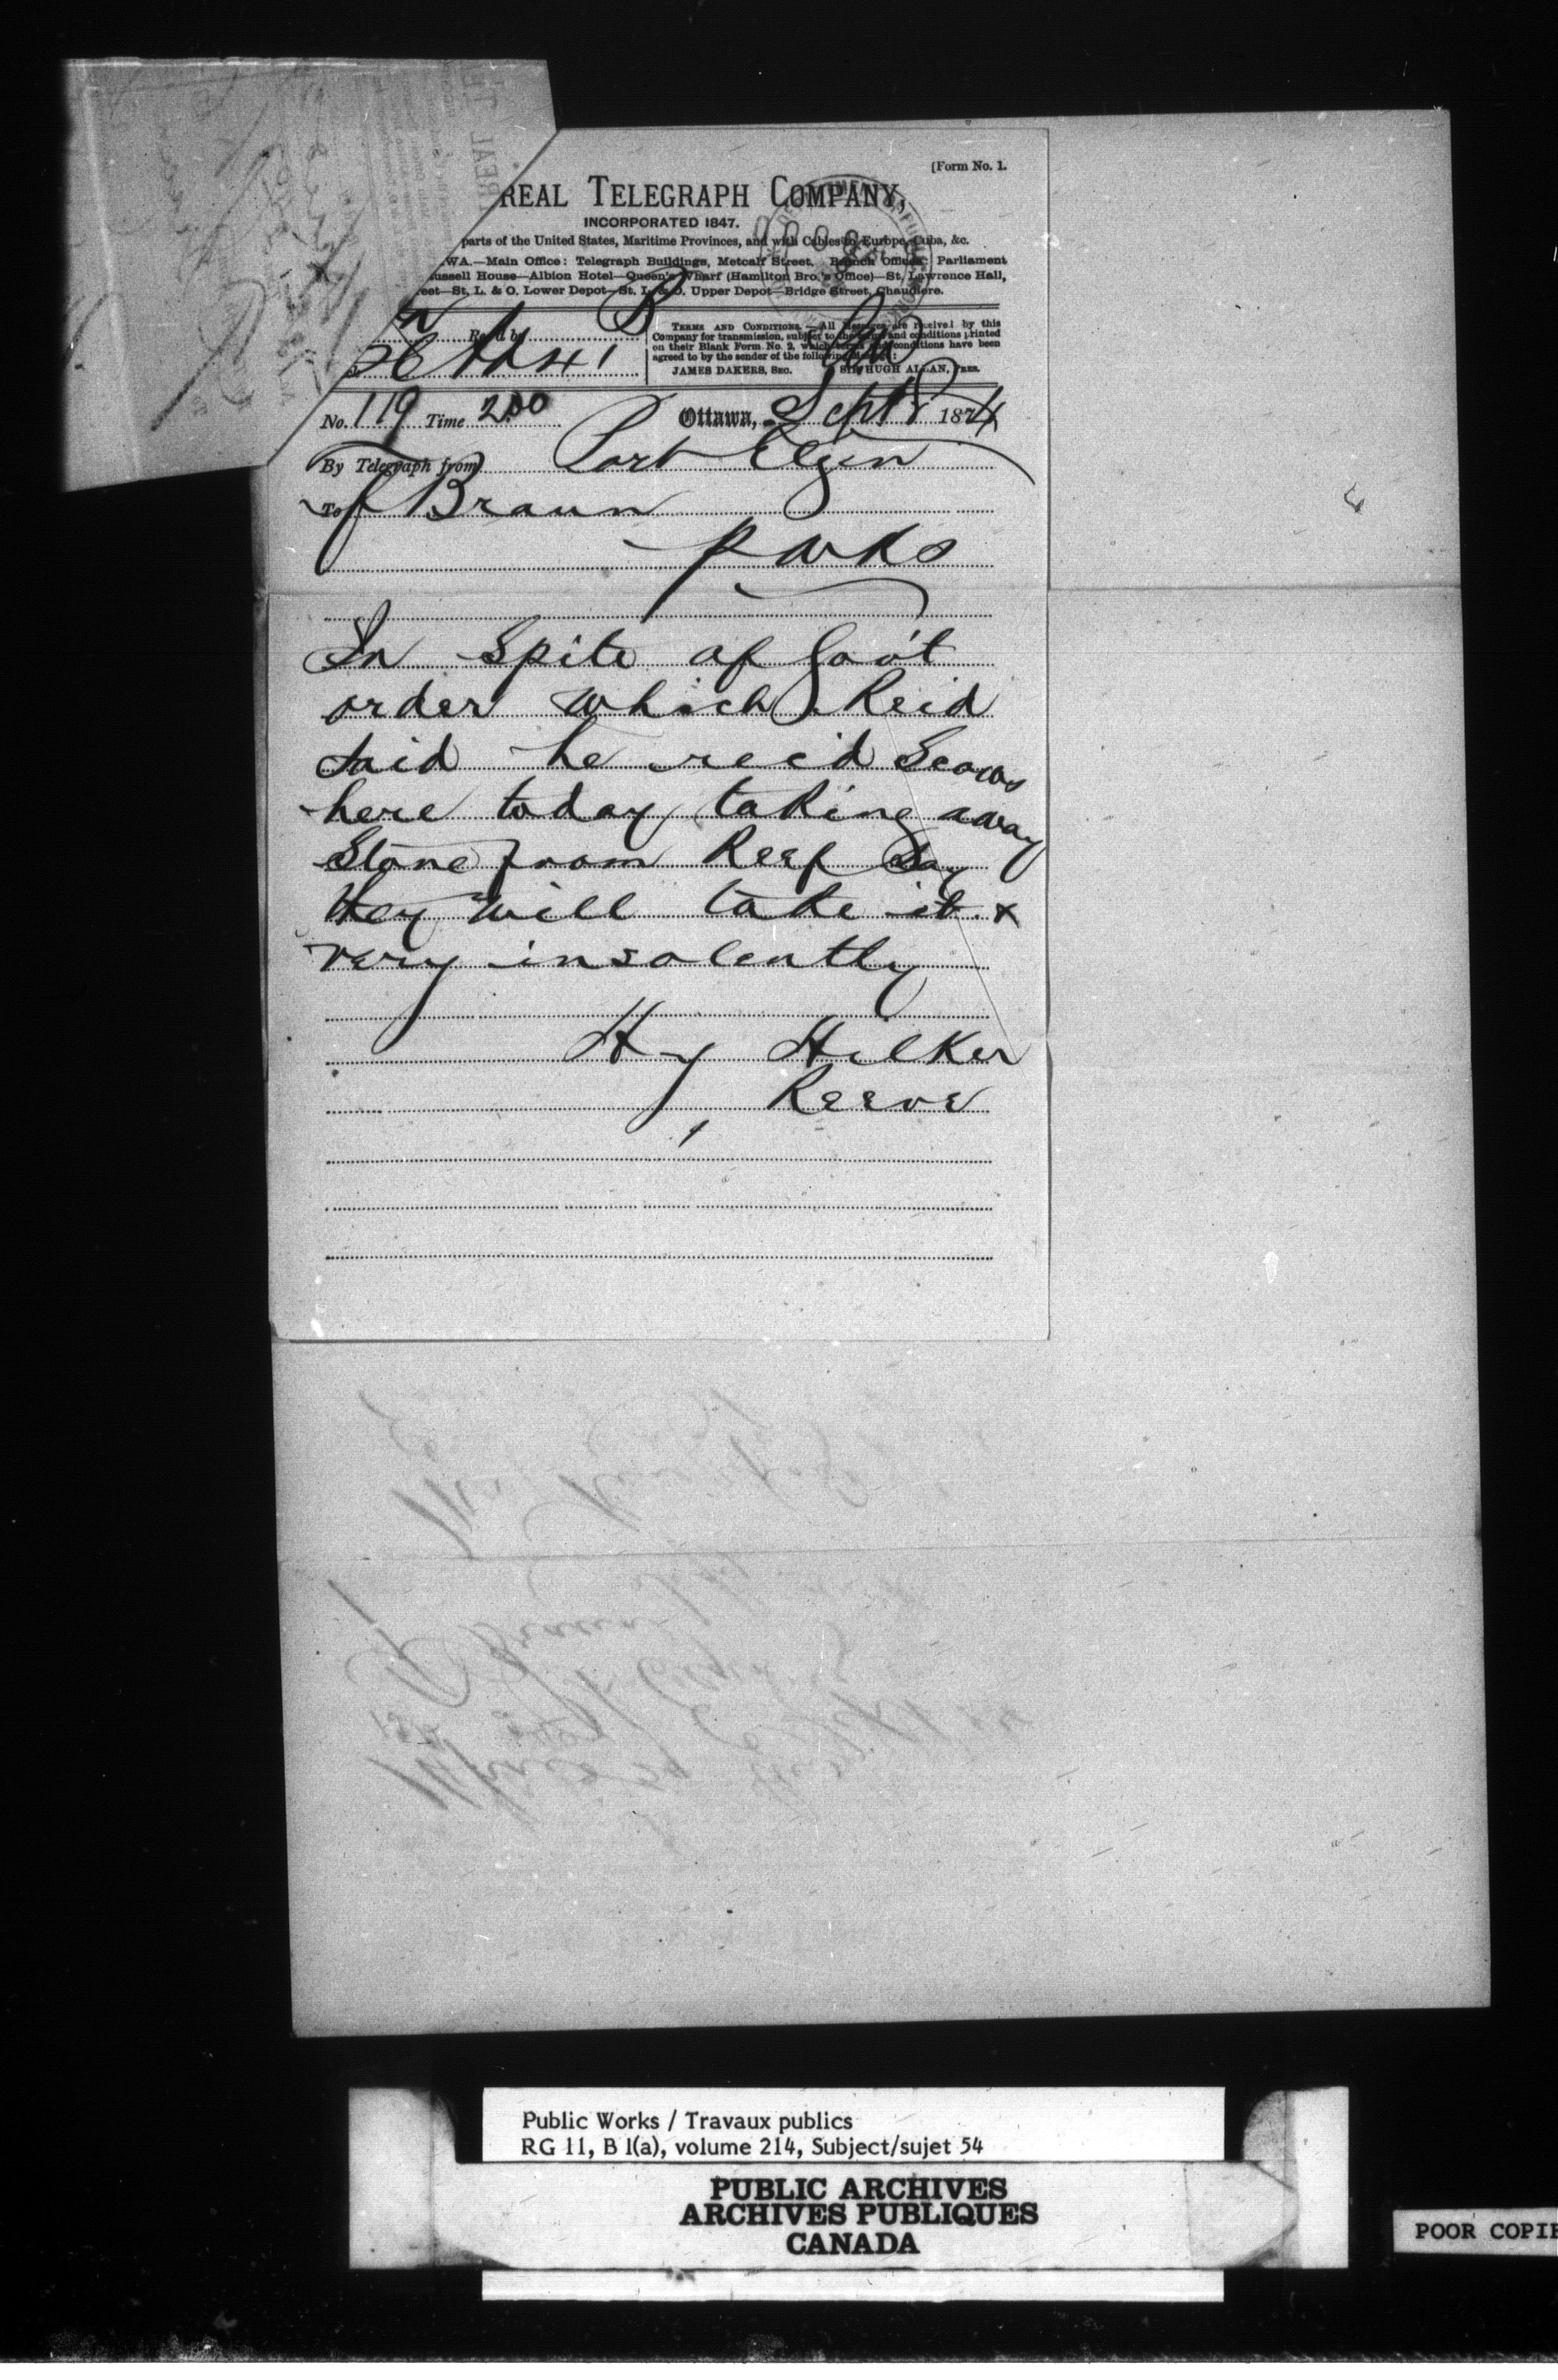 [Form No. 1.
REAL TELEGRAPH COMPANY,
INCORPORATED 1847.
parts of the United States, Maritime Provinces, and with Cables to Europe, Cuba, &c.
WA.—Main Office: Telegraph Buildings, Metcalf Street. Branch Offices: Parliament
ussell House—Albion Hotel—Queen's Wharf (Hamilton Bro.'s Office)—St. Lawrence Hall,
eet—St. L. & O. Lower Depot—St. L. & O. Upper Depot—Bridge Street, Chaudiere.
Rec'd by
TERMS AND CONDITIONS.—All Messages are received by this
Company for transmission, subject to the terms and conditions printed
on their Blank Form No. 2, which terms and conditions have been
agreed to by the sender of the following Message:
JAMES DAKERS, SEC. SIR HUGH ALLAN, PRES.
No. 119 Time 2.00 Ottawa, Sept 8 1874
By Telegraph from Port Elgin
To F Braun
P Wks
In Spite of Gov't
order which Reid
said he rec'd Scows
here today taking away
Stone from Reef Say
they will take it &
very insolently
Hy Hilker
Reeve
Public Works / Travaux publics
RG 11, B 1(a), volume 214, Subject/sujet 54
PUBLIC ARCHIVES
ARCHIVES PUBLIQUES
CANADA
POOR COPIE